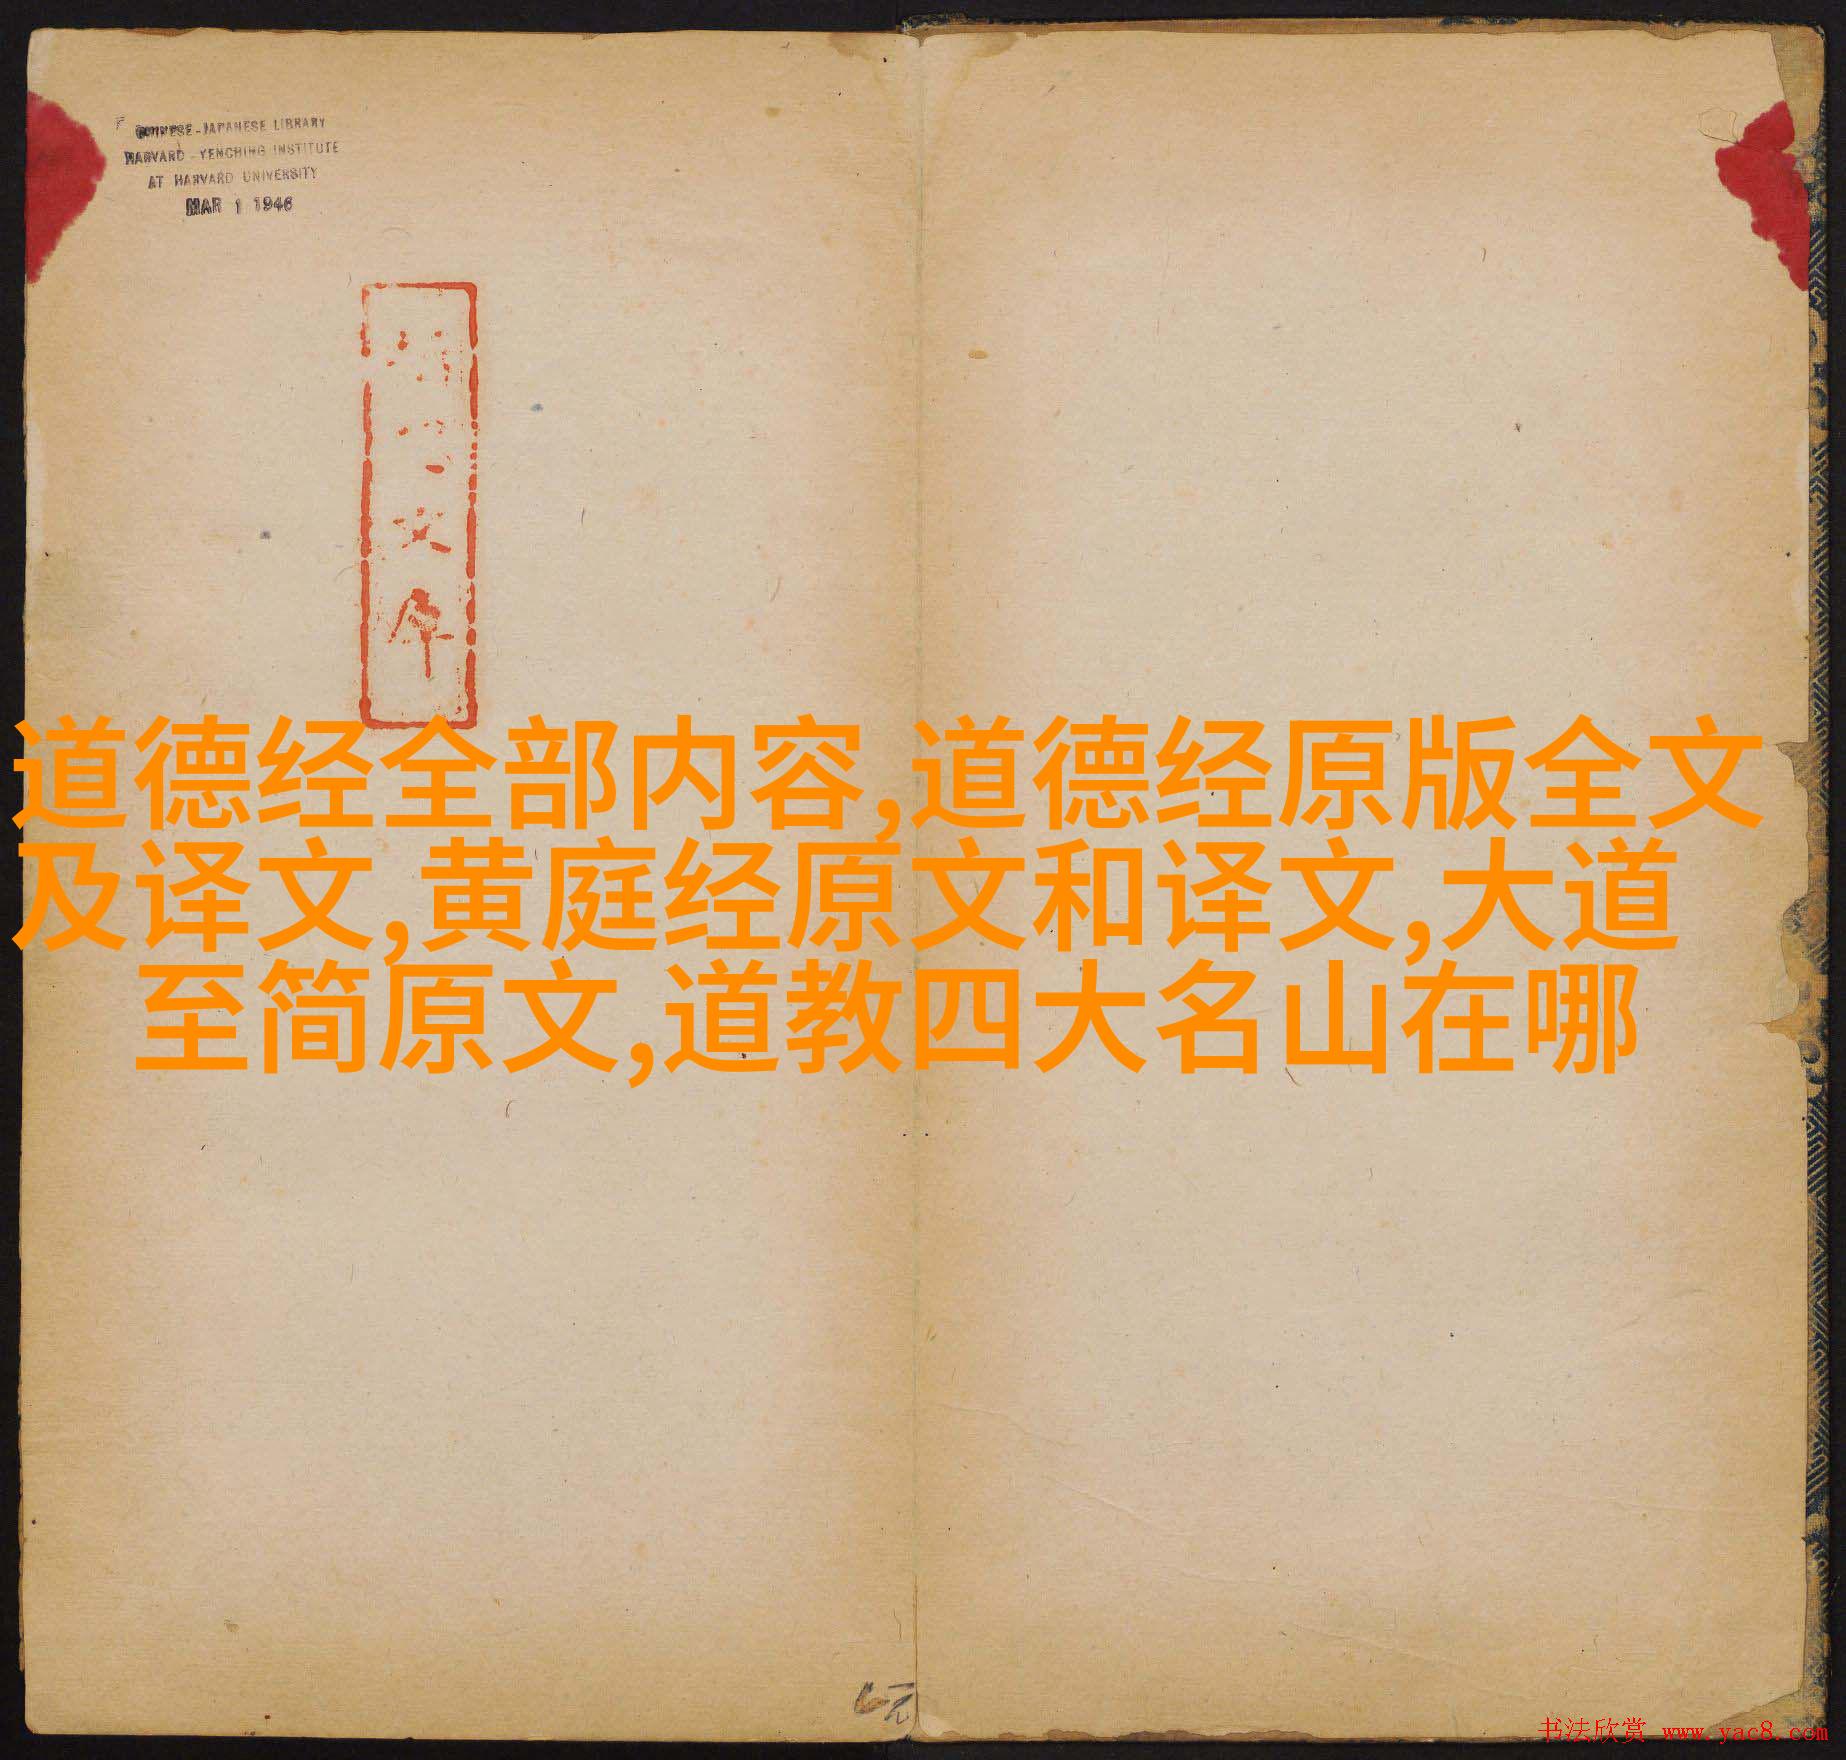 CHINESE-JAPANESE LIBRARY
HARVARD-YENCHING INSTITUTE
AT HARVARD UNIVERSITY
MAR 1 1946
道德经全部内容,道德经原版全文
及译文,黄庭经原文和译文,大道
至简原文,道教四大名山在哪
6元
书法欣赏 www.yac8.com